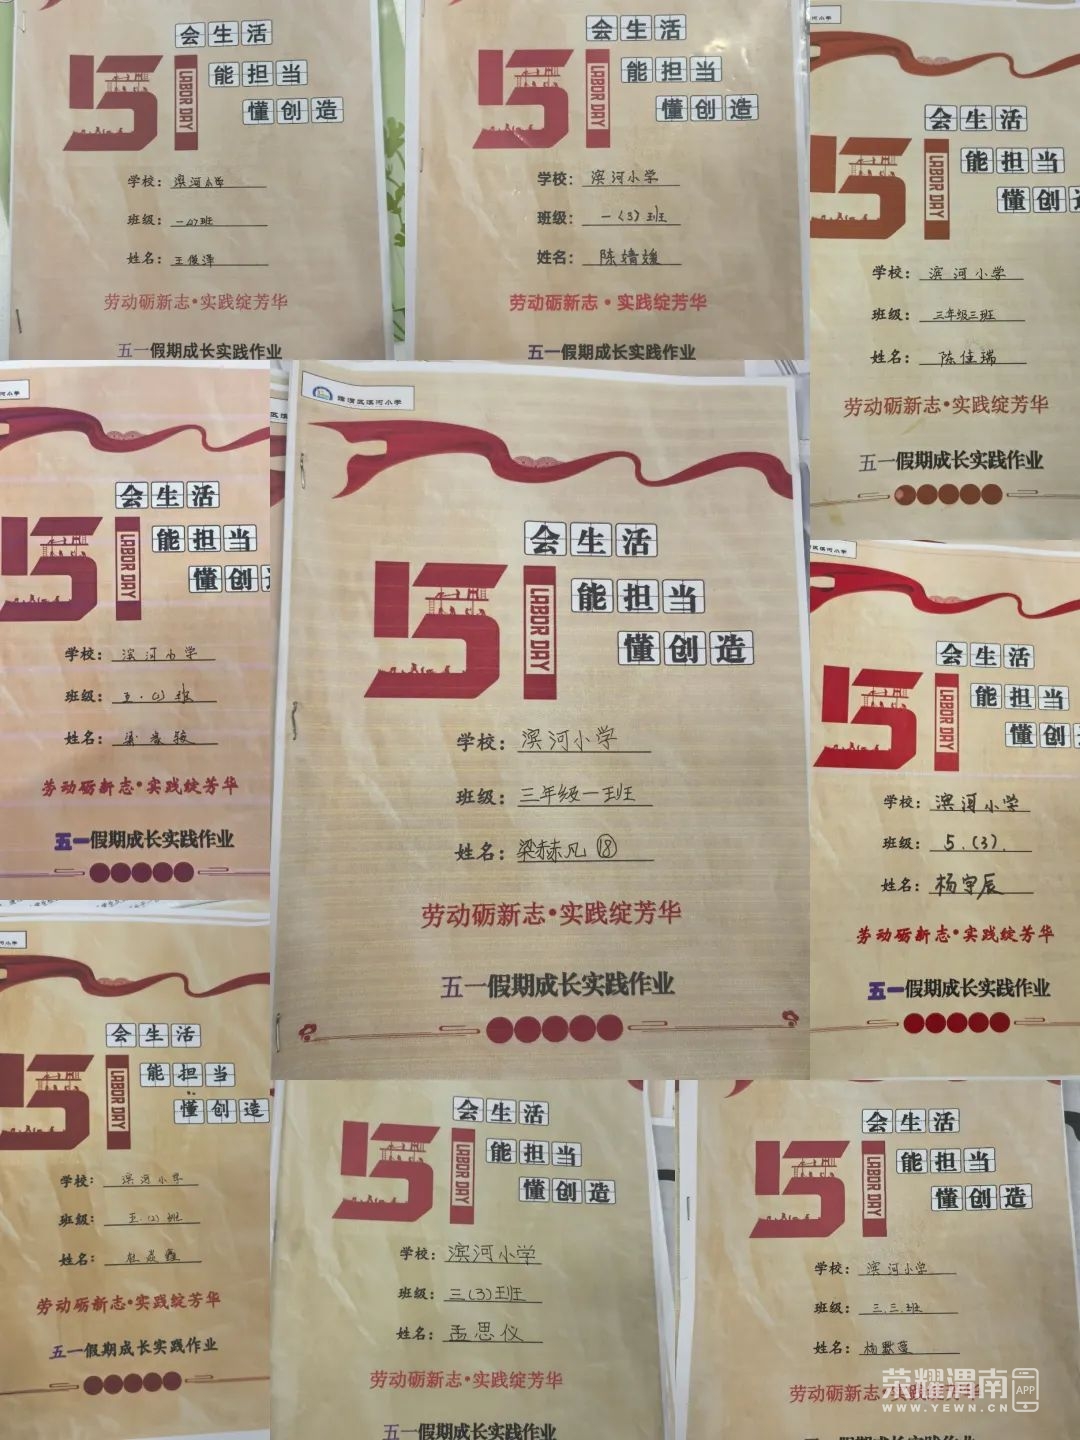 会生活
能担当
懂创造
51
LABOR DAY
学校：滨河小学
班级：一
姓名：王俊泽
劳动砺新志·实践绽芳华
五一假期成长实践作业
会生活
能担当
懂创造
51
LABOR DAY
学校：滨河小学
班级：一（3）班
姓名：陈婧媛
劳动砺新志·实践绽芳华
五一假期成长实践作业
小学
会生活
能担当
懂创造
51
LABOR DAY
学校：滨河小学
班级：三年级三班
姓名：陈佳瑞
劳动砺新志·实践绽芳华
五一假期成长实践作业
河小学
会生活
能担当
懂创造
51
LABOR DAY
学校：滨河小学
班级：五
姓名：
劳动砺新志·实践绽芳华
五一假期成长实践作业
临渭区滨河小学
会生活
能担当
懂创造
51
LABOR DAY
学校：滨河小学
班级：三年级一班
姓名：梁赫凡 ⑱
劳动砺新志·实践绽芳华
五一假期成长实践作业
区滨河小学
会生活
能担当
懂创
51
LABOR DAY
学校：滨河小学
班级：5.（3）.
姓名：杨宇辰
劳动砺新志·实践绽芳华
五一假期成长实践作业
小学
会生活
能担当
懂创造
51
LABOR DAY
学校：滨河小学
班级：五.(2)班
姓名：
劳动砺新志·实践绽芳华
五一假期成长实践作业
会生活
能担当
懂创造
51
LABOR DAY
学校：滨河小学
班级：三（3）班
姓名：孟思仪
劳动砺新志·实践绽芳华
五一假期成长实践作业
会生活
能担当
懂创造
51
LABOR DAY
学校：滨河小学
班级：三.三.班
姓名：杨默
劳动砺新志·实践绽芳华
五一假期成长实践作业
荣耀渭南 APP
WWW.YEWN.CN